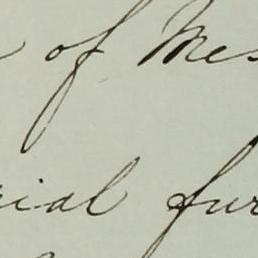 of Mes
rial fur